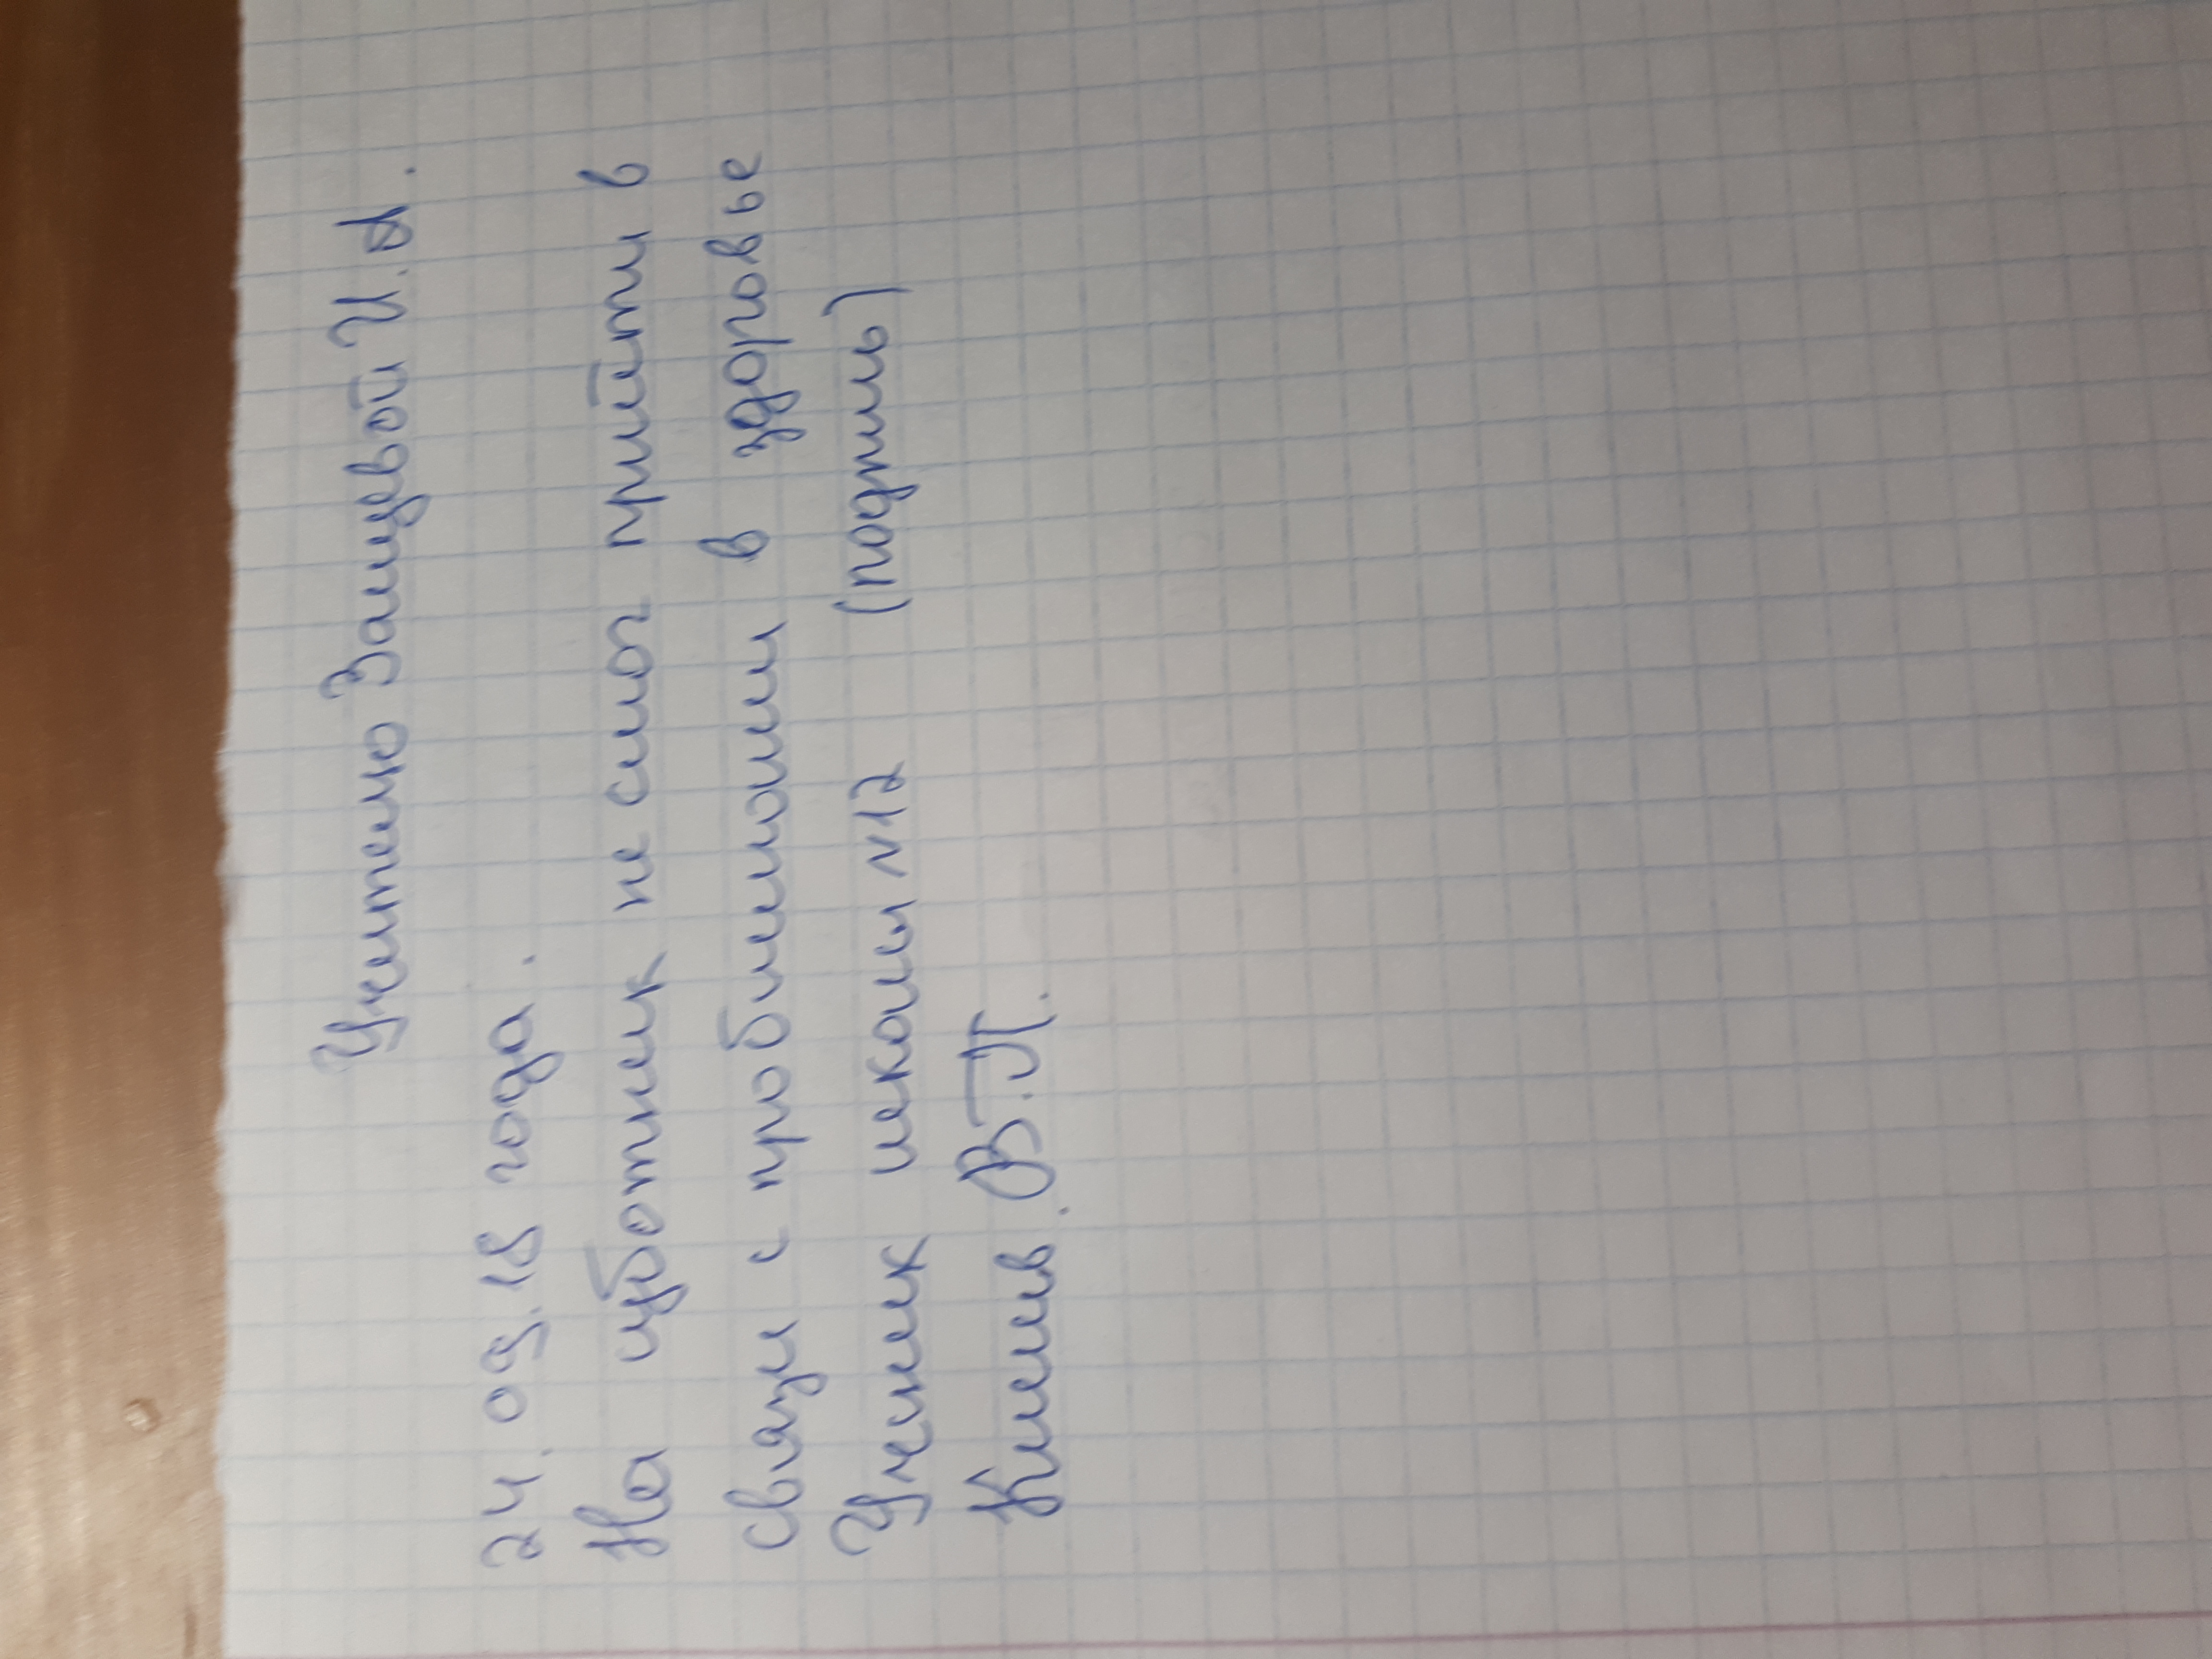 Учителю Зайцевой И.А.
24.09.18 года.
На суботник не смог прийти в
связи с проблемами в здоровье
Ученик школы №12 (подпись)
Климов. В.П.